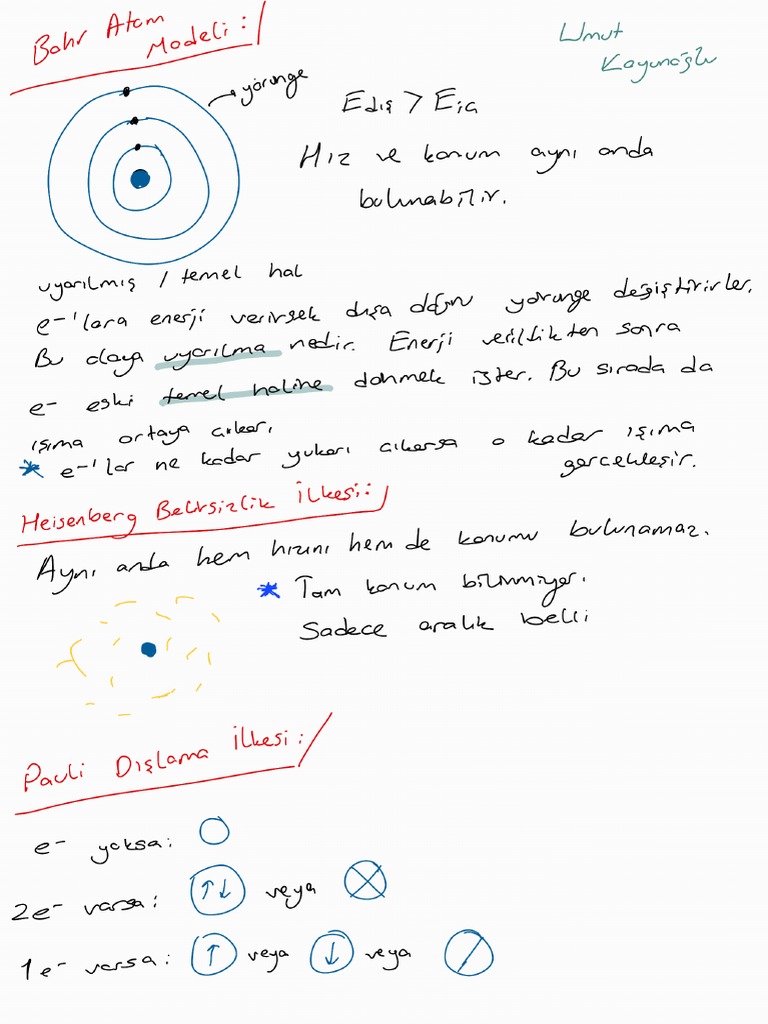 Bohr Atom Modeli:
Umut
Koyunoğlu
yörünge
Edış > Eiç
Hız ve konum aynı anda
bulunabilir.
uyarılmış / temel hal
e-'lara enerji verirsek dışa doğru yörünge değiştirirler.
Bu olaya uyarılma nedir. Enerji verildikten sonra
e- eski temel haline dönmek ister. Bu sırada da
ışıma ortaya çıkar.
* e-'lar ne kadar yukarı çıkarsa o kadar ışıma
gerçekleşir.
Heisenberg Belirsizlik İlkesi:
Aynı anda hem hızını hem de konumu bulunamaz.
* Tam konum bilinmiyor.
Sadece aralık belli
Pauli Dışlama İlkesi:
e- yoksa:
2e- varsa: ↑↓ veya
1e- varsa: ↑ veya ↓ veya